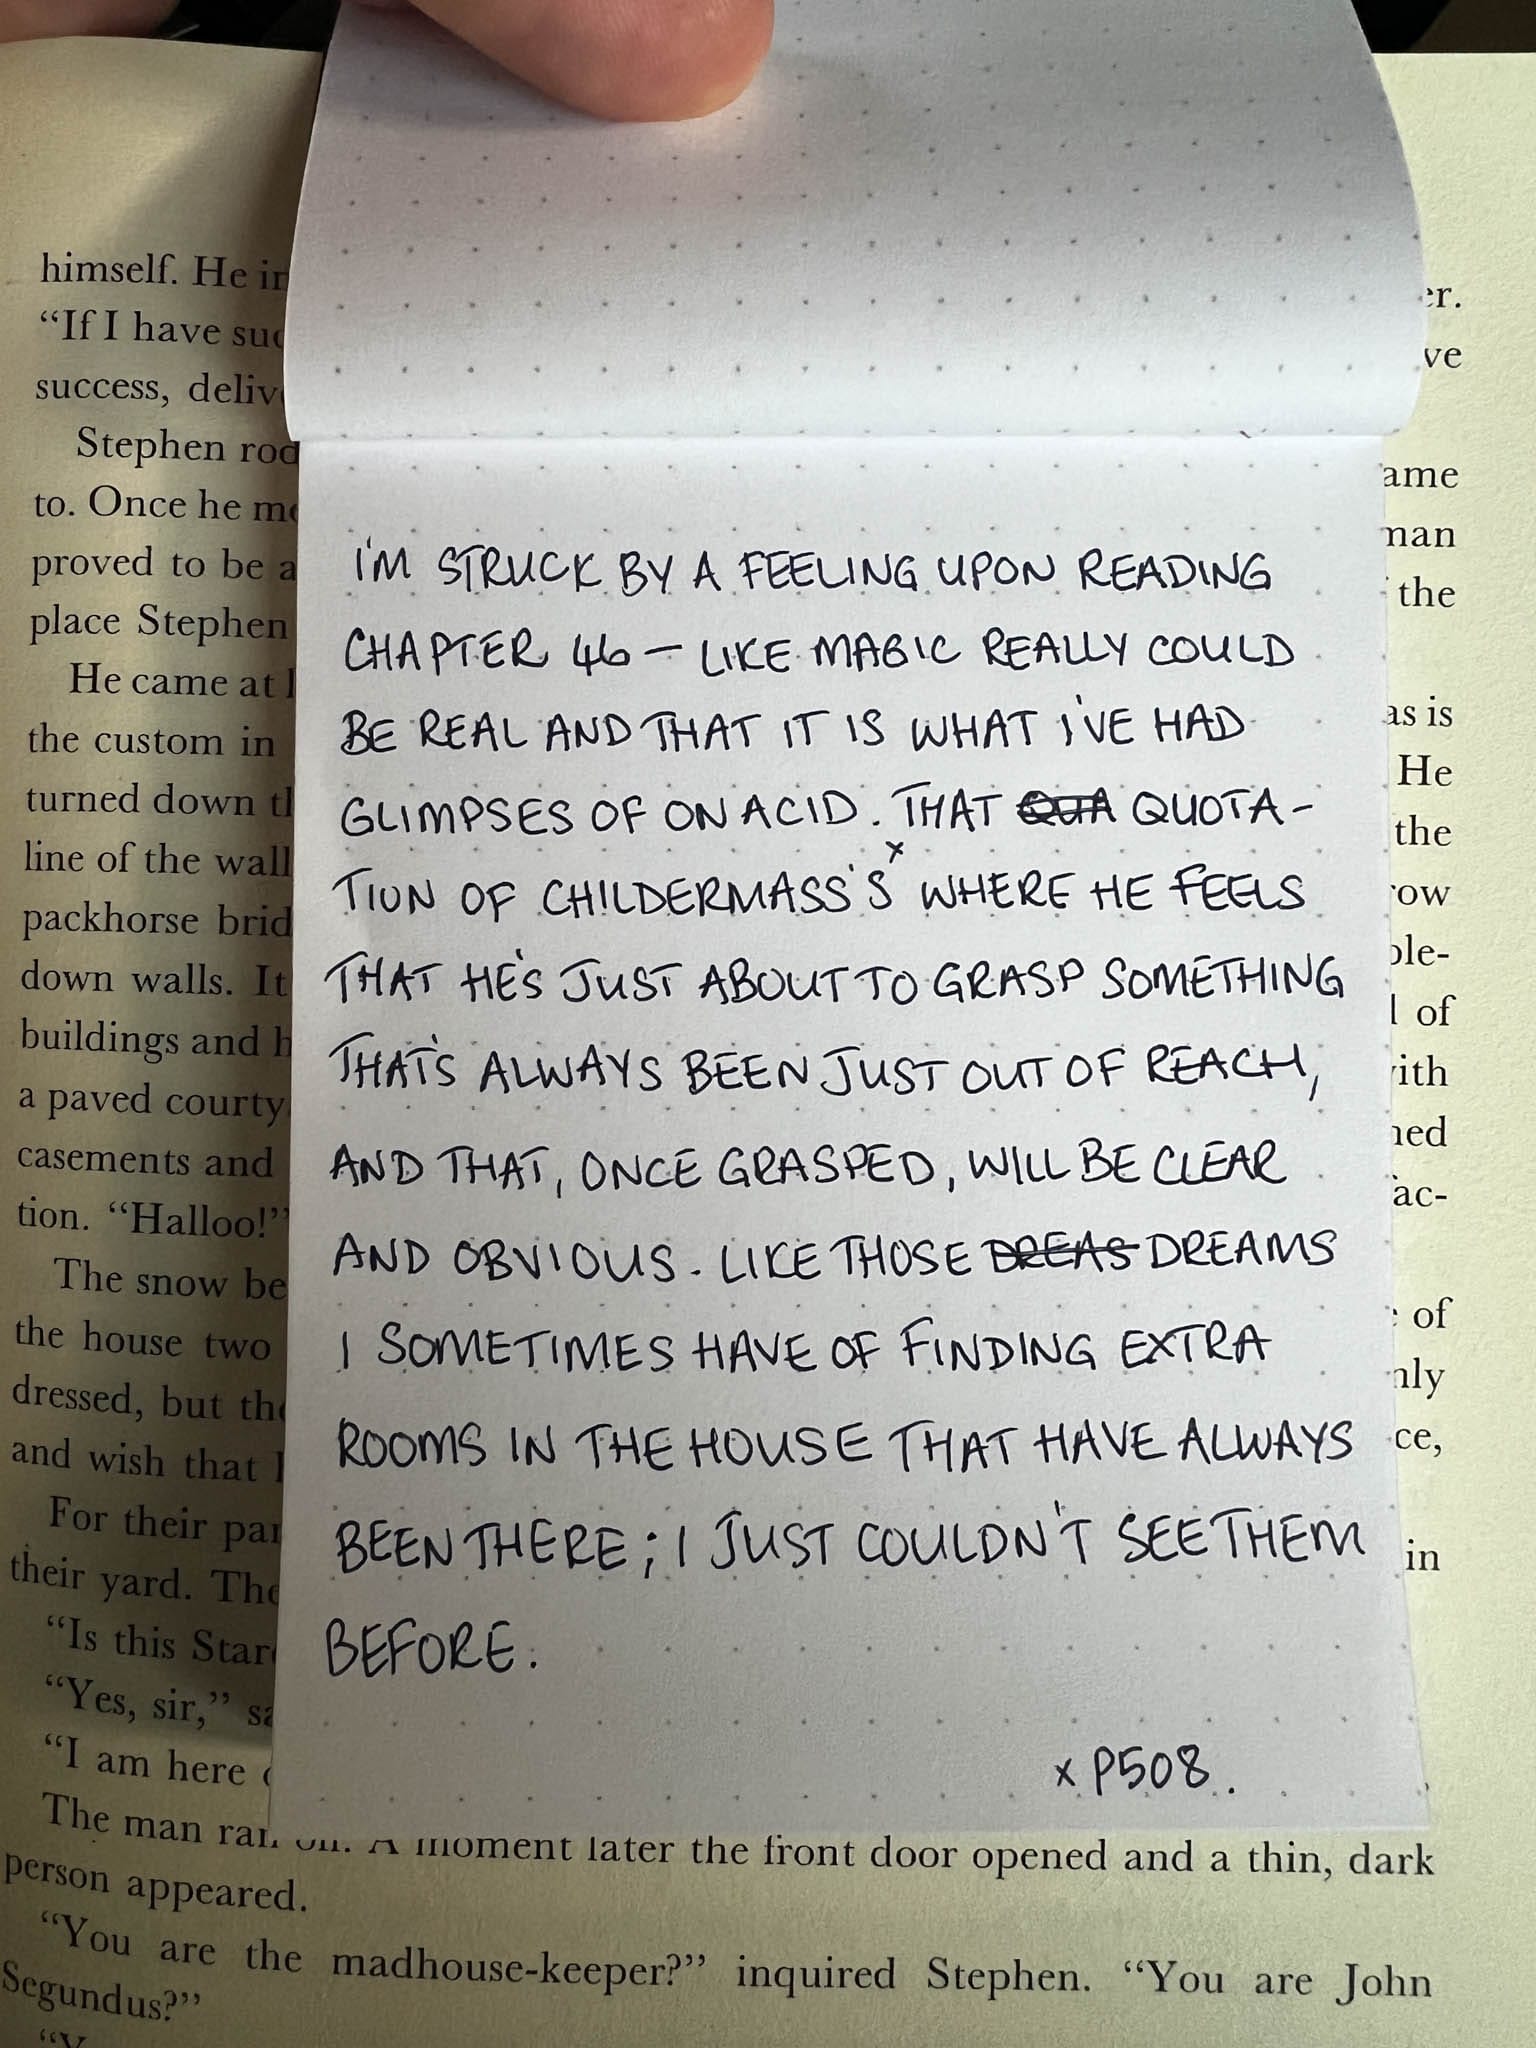 himself. He
"If I have
success,
Stephen
to. Once he
proved to be a
place Stephen
He came at
the custom in
turned down
line of the wall
packhorse
down walls. It
buildings and
a paved
casements and
tion. "Halloo!"
The snow
the house two
dressed, but
and wish that
For their
their yard.
"Is this
"Yes, sir,"
"I am here
The man ran
I'M STRUCK BY A FEELING UPON READING
CHAPTER 46 — LIKE MAGIC REALLY COULD
BE REAL AND THAT IT IS WHAT I'VE HAD
GLIMPSES OF ON ACID. THAT QUOTA-
TION OF CHILDERMASS'S x WHERE HE FEELS
THAT HE'S JUST ABOUT TO GRASP SOMETHING
THAT'S ALWAYS BEEN JUST OUT OF REACH,
AND THAT, ONCE GRASPED, WILL BE CLEAR
AND OBVIOUS. LIKE THOSE DREAS DREAMS
I SOMETIMES HAVE OF FINDING EXTRA
ROOMS IN THE HOUSE THAT HAVE ALWAYS
BEEN THERE; I JUST COULDN'T SEE THEM
BEFORE.
x P508.
the
as is
He
the
of
of
in
A moment later the front door opened and a thin, dark
person appeared.
"You are the madhouse-keeper?" inquired Stephen. "You are John
Segundus?"